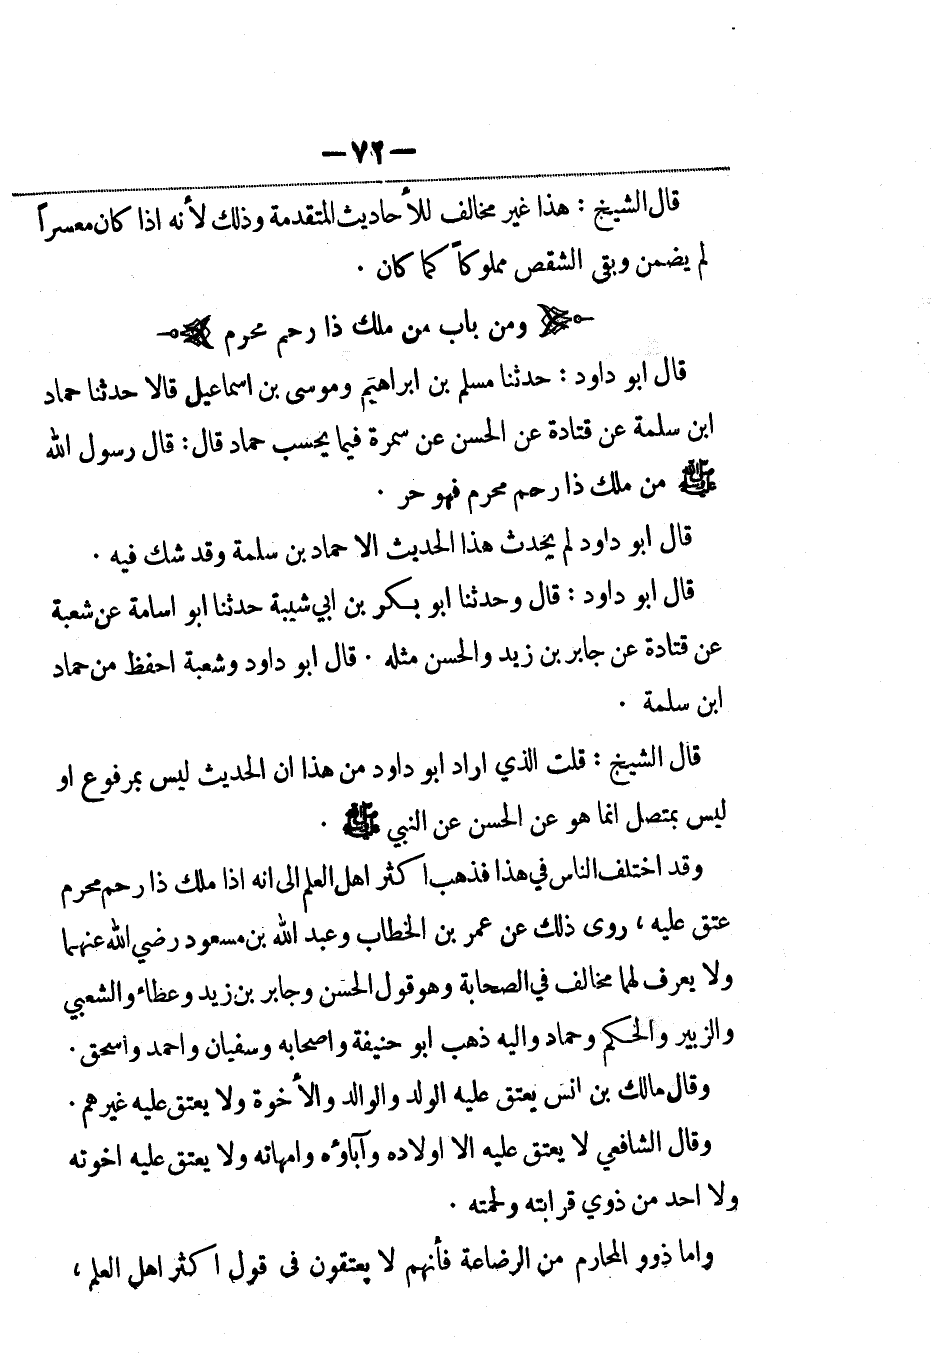 —٧٢—
قال الشيخ : هذا غير مخالف للأحاديث المتقدمة وذلك لأنه اذا كان معسراً
لم يضمن وبقى الشقص مملوكاً كما كان ٠
ومن باب من ملك ذا رحم محرم
قال ابو داود : حدثنا مسلم بن ابراهيم وموسى بن اسماعيل قالا حدثنا حماد
ابن سلمة عن قتادة عن الحسن عن سمرة فيما يحسب حماد قال : قال رسول الله
ﷺ من ملك ذا رحم محرم فهو حر ٠
قال ابو داود لم يحدث هذا الحديث الا حماد بن سلمة وقد شك فيه ٠
قال ابو داود : قال وحدثنا ابو بكر بن ابي شيبة حدثنا ابو اسامة عن شعبة
عن قتادة عن جابر بن زيد والحسن مثله ٠ قال ابو داود وشعبة احفظ من حماد
ابن سلمة ٠
قال الشيخ : قلت الذي اراد ابو داود من هذا ان الحديث ليس بمرفوع او
ليس بمتصل انما هو عن الحسن عن النبي ﷺ ٠
وقد اختلف الناس في هذا فذهب اكثر اهل العلم الى انه اذا ملك ذا رحم محرم
عتق عليه ، روى ذلك عن عمر بن الخطاب وعبد الله بن مسعود رضي الله عنهما
ولا يعرف لهما مخالف في الصحابة وهو قول الحسن وجابر بن زيد وعطاء والشعبي
والزبير والحكم وحماد واليه ذهب ابو حنيفة واصحابه وسفيان واحمد واسحق ٠
وقال مالك بن انس يعتق عليه الولد والوالد والأخوة ولا يعتق عليه غيرهم ٠
وقال الشافعي لا يعتق عليه الا اولاده وآباؤه وامهاته ولا يعتق عليه اخوته
ولا احد من ذوي قرابته ولحمته ٠
واما ذوو المحارم من الرضاعة فأنهم لا يعتقون فى قول اكثر اهل العلم ،